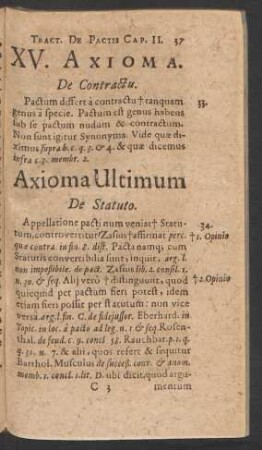 TRACT. DE PACTIS CAP. II. 37
XV. AXIOMA.
De Contractu.
Pactum differt à contractu † tanquam 33.
genus à specie. Pactum est genus habens
sub se pactum nudum & contractum.
Non sunt igitur Synonyma. Vide quæ di-
ximus supra b. c. q. 3. & 4. & quæ dicemus
infra c. 3. membr. 2.
Axioma Ultimum
De Statuto.
Appellatione pacti num veniat † Statu- 34.
tum, controvertitur? Zasius † affirmat per c. † 1. Opinio
quæ contra in fin. 2. dist. Pacta namq; cum
Statutis convertibilia sunt, inquit, arg. l.
non impossibile. de pact. Zasius lib. 2. consil. 1.
n. 30. & seq. Alij verò † distinguunt, quod † 2. Opinio
quicquid per pactum fieri potest, idem
etiam fieri posse per statutum: non vice
versa. arg. l. fin. C. de fidejussor. Eberhard. in
Topic. in loc. à pacto ad leg. n. 1. & seq. Rosen-
thal. de feud. c. 9. concl 38. Rauchbar. p. 1. q.
q. 31. n. 7. & alii, quos refert & sequitur
Barthol. Musculus de success. conv. & anom.
memb. 1. concl. 1. lit. D. ubi dicit, quod argu-
C 3 mentum